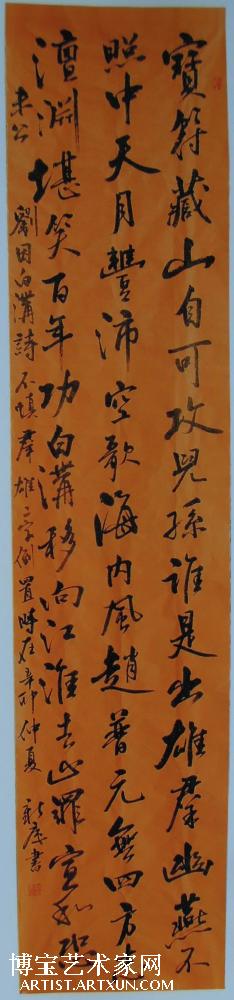 寶符藏山自可攻兒孫誰是出雄羣幽燕不
照中天月豐沛空歌海內風趙普元無四方志
澶淵堪笑百年功白溝移向江淮去止罪宣和恐
未公 劉因白溝詩 不慎羣雄二字倒置時在辛卯仲夏 書
博宝艺术家网
ARTIST.ARTXUN.COM